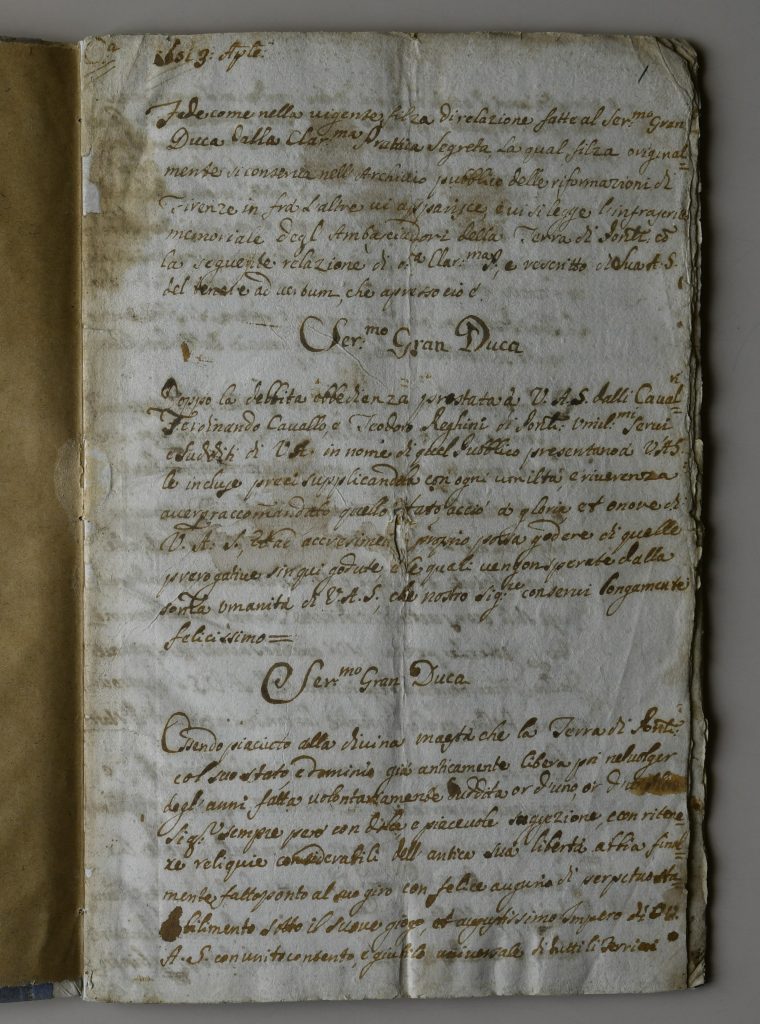 1
Fede come nella vigente filza di relazione fatte al Ser.mo Gran
Duca dalla Clar.ma Prattica Segreta La qual filza original=
mente si conserva nell'Archivio pubblico delle riformazioni di
Firenze in frà l'altre vi apparisce, e vi si legge l'infrascritto
memoriale degl'Ambasciadori della Terra di Pont.
la seguente relazione di Clar.ma P., e rescritto di Sua A. S.
del tenere ad verbum che apresso cio è
Ser.mo Gran Duca
Doppo la debbita obbedienza prestata à V. A. S. dalli Caval.ri
Ferdinando Cavallo e Teodoro Reghini di Pont. Umil.mi Servi
e Sudditi di V. A. in nome di quel Pubblico presentano à V. A. S.
le incluse preci supplicandola con ogni umiltà e riverenza
aver raccomandato quello stato acciò à gloria et onore di
V. A. S. et ad accrescimen proprio possa godere di quelle
prerogative sin qui godute e le quali vengon sperate dalla
somma umanità di V. A. S., che nostro Sig.re conservi longamente
felicissimo=
Ser.mo Gran Duca
Essendo piaciuto alla divina maestà che la Terra di Pont.
col suo stato e dominio già anticamente libera poi nel volger
degl'anni fatta volontariamente suddita or d'uno, or d'un
Sig.re sempre però con dolce e piacevole sugezione, e con ritene=
re reliquie considerabili dell'antica sua libertà abbia final=
mente fatto ponto al suo giro con felice augurio di perpetuo sta=
bilimento sotto il suave giogo, et augustissimo Impero di V.
A. S. con unito contento, e giubilo universale di tutti li Terrieri